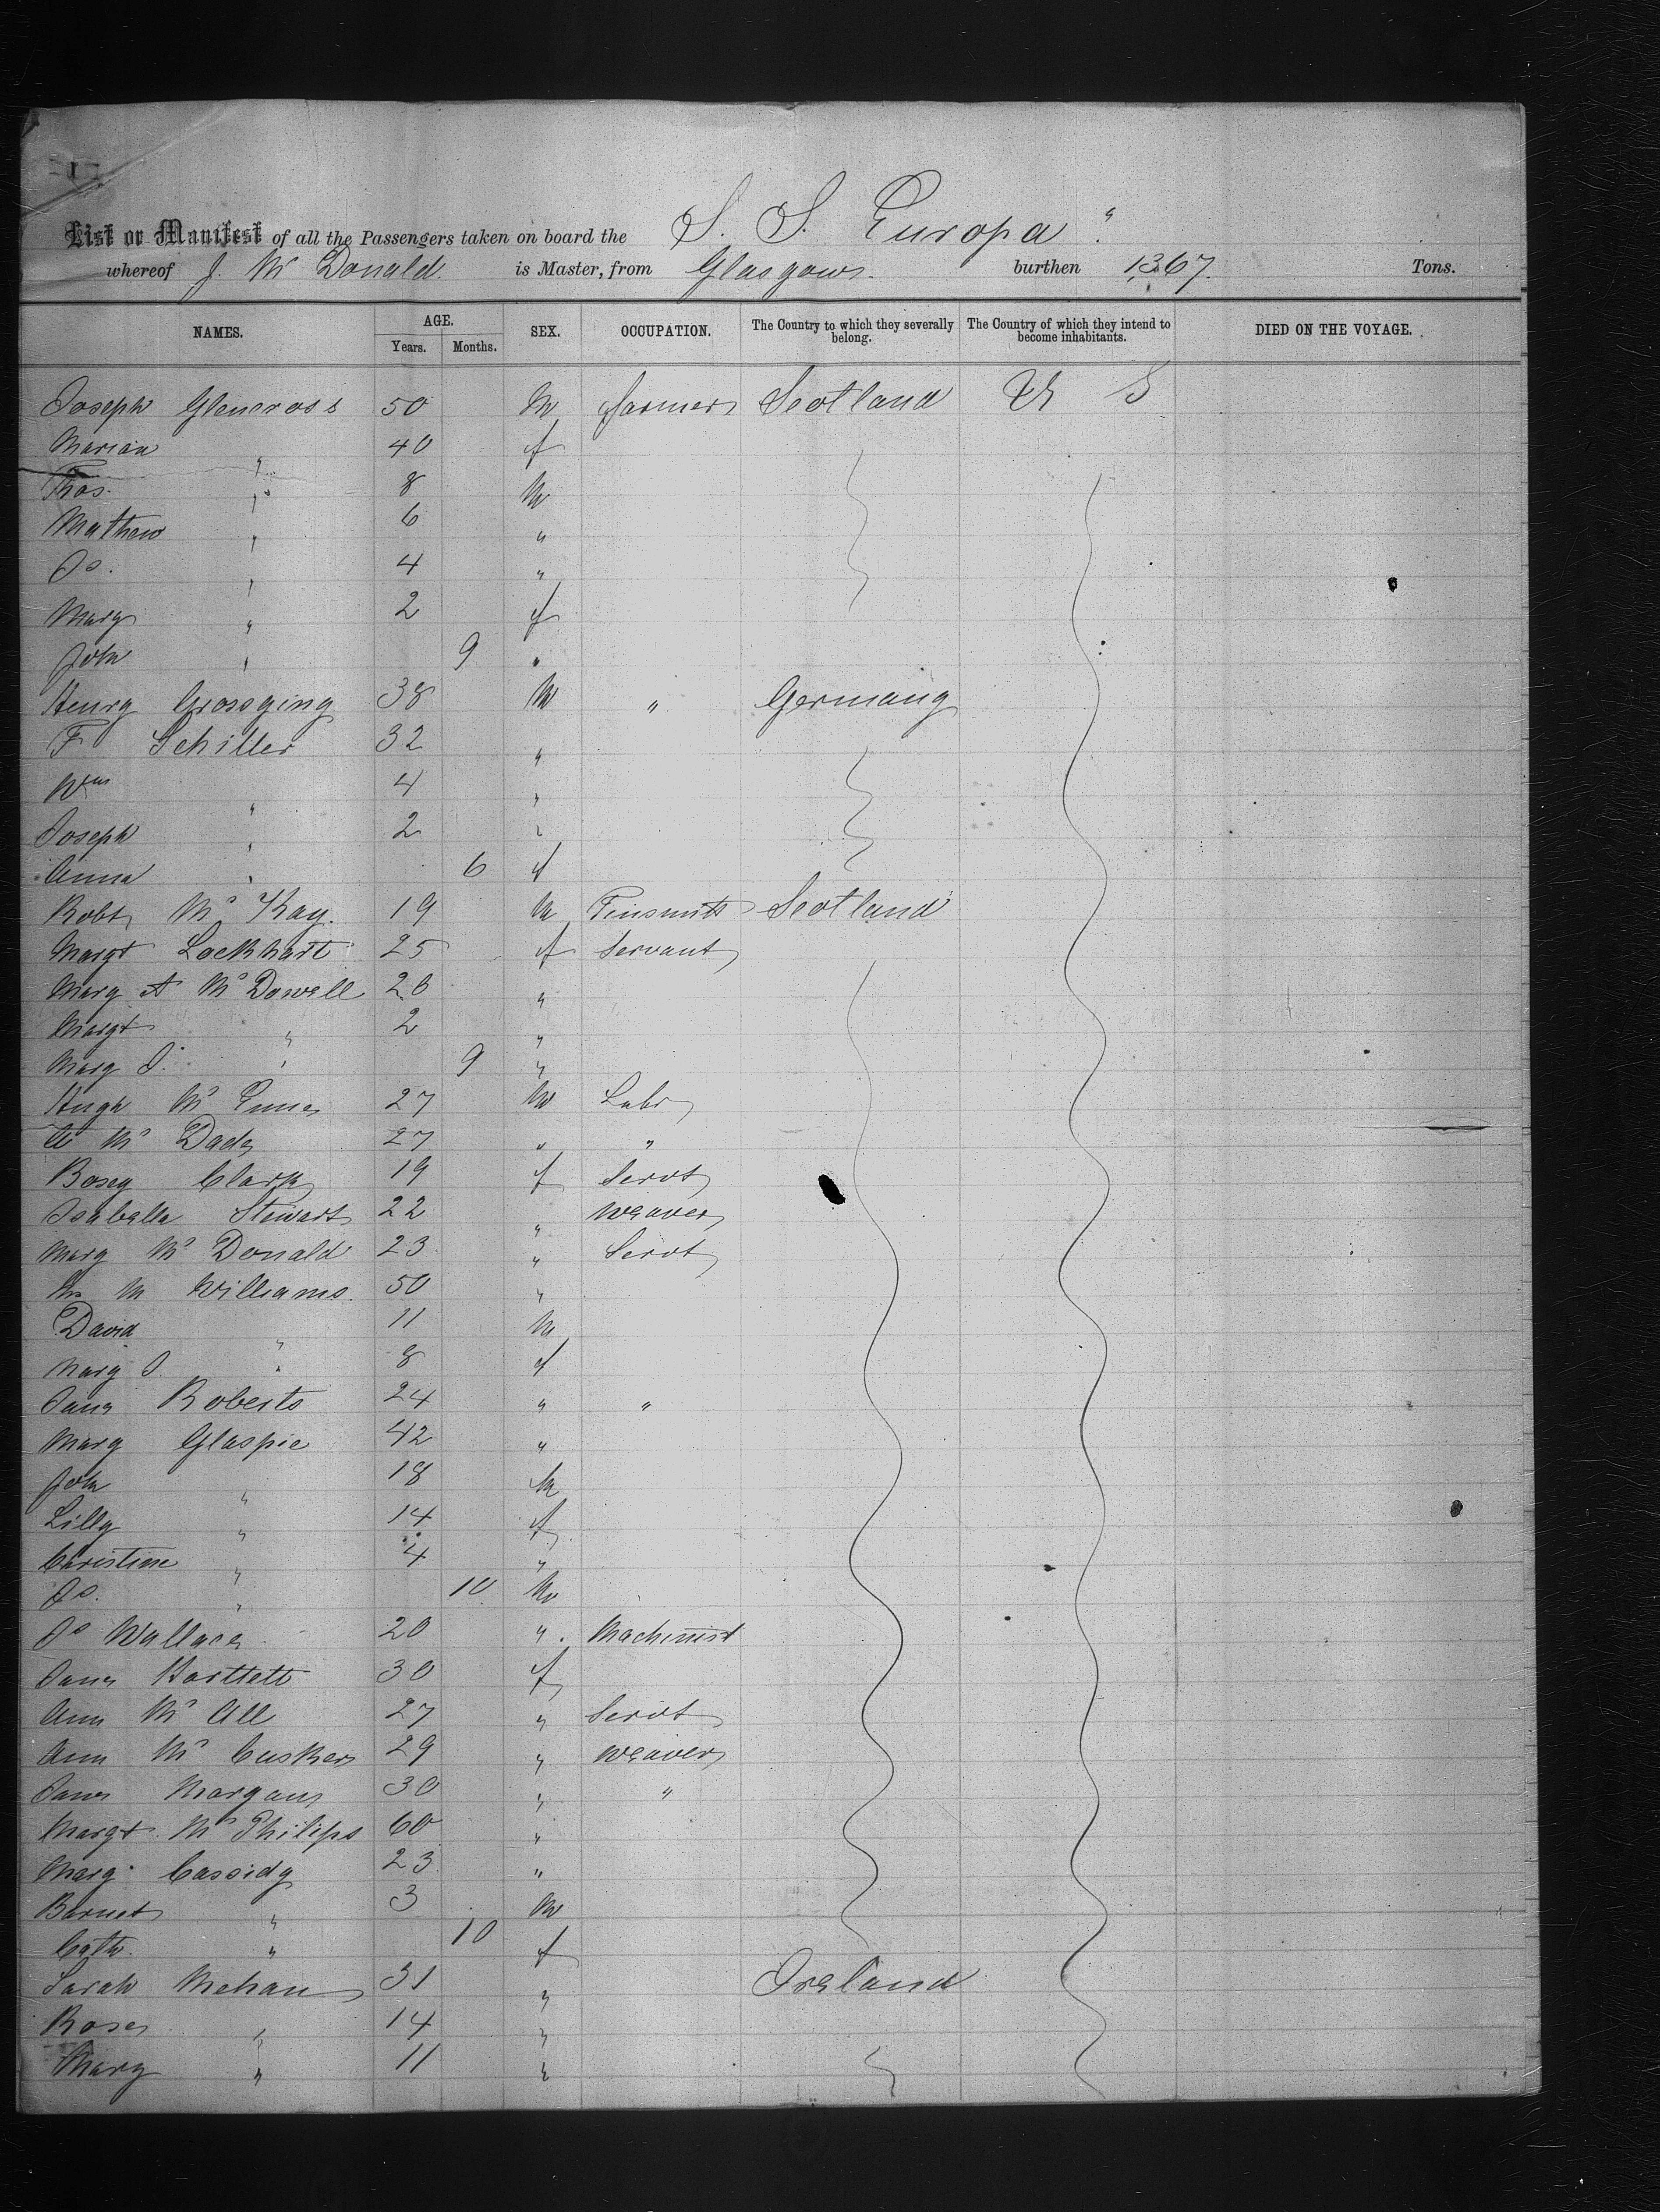 1
List or Manifest of all the Passengers taken on board the S. S. Europa "
whereof J. Mc Donald. is Master, from Glasgow. burthen 1367. Tons.
NAMES. AGE. Years. Months. SEX. OCCUPATION. The Country to which they severally belong. The Country of which they intend to become inhabitants. DIED ON THE VOYAGE.
Joseph Glencross 50 M farmer Scotland U S
Marian " 40 f
Thos. " 8 M
Mathew " 6 "
Js. " 4 "
Mary " 2 f
John " 9 "
Henry Grossging 38 M " Germany
F Schiller 32 "
Wm " 4 "
Joseph " 2 "
Anna " 6 f
Robt Mc Kay. 19 M Tinsmith Scotland
Margt Lockhart 25 f Servant
Mary A Mc Dowall 26 "
Margt " 2 "
Mary J. " 9 "
Hugh Mc 27 M Labr
A Mc Dade 27 " "
Clark 19 f Servt
Isabella Stewart 22 " Weaver
Mary Mc Donald 23 " Servt
Mrs M Williams. 50 "
David " 11 M
Mary J. " 8 f
Jane Roberts 24 " "
Mary Glaspie 42 "
John " 18 M
Lilly " 14 f
Christine " 4 "
Js. " 10 M
Js Wallace 20 " Machinist
Jane Hartlett 30 f
Ann Mc All 27 " Servt
Ann Mc Cusker 29 " Weaver
Jane Morgan 30 " "
Margt Mc Philips 60 "
Mary Cassidy 23 "
Barnet " 3 M
Cath. " 10 f
Sarah Mehan 31 " Ireland
Rose " 14 "
Mary " 11 "